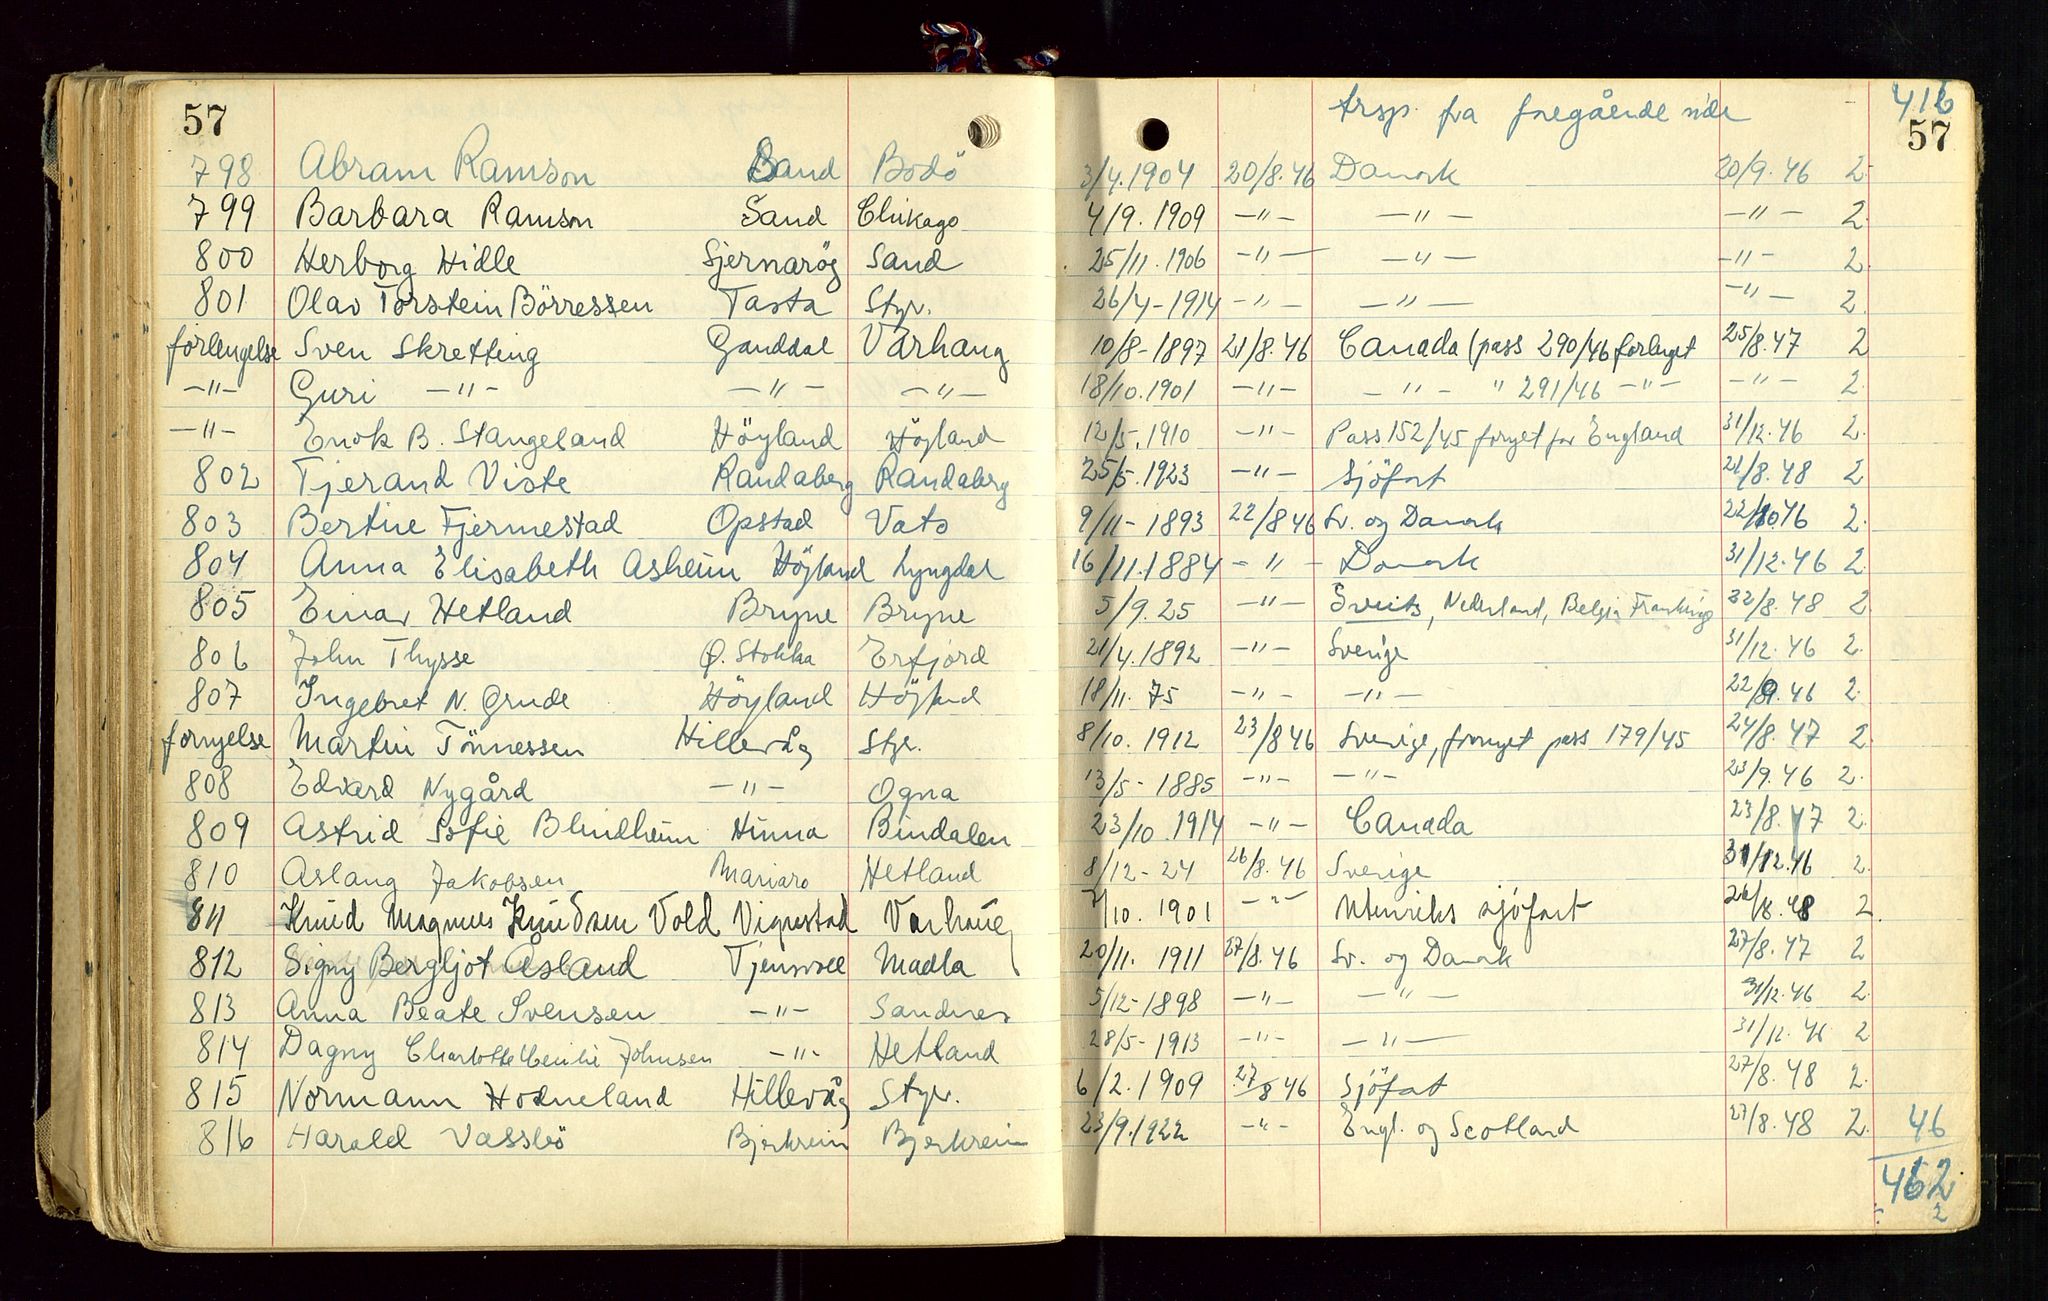 57
trsp. fra foregående side 416
57
798 Abram Ramson Sand Bodö 3/4.1904 20/8.46 Danmk 20/9.46 2
799 Barbara Ramson Sand Chikago 4/9.1909 -"- -"- -"- 2
800 Herborg Hidle Sjernarög Sand 25/11.1906 -"- -"- -"- 2
801 Olav Torstein Börressen Tasta Styr. 26/4-1914 -"- -"- -"- 2
forlengelse Sven Skretting Ganddal Varhaug 10/8-1897 21/8.46 Canada (pass 290/46 forlenget 25/8.47 2
-"- Guri -"- -"- -"- 18/10.1901 -"- -"- " 291/46 -"- -"- 2
-"- Enok B. Stangeland Höyland Höyland 12/5.1910 -"- Pass 152/45 fornyet for England 31/12.46 2
802 Tjerand Viste Randaberg Randaberg 25/5.1923 -"- Sjöfart 21/8.48 2
803 Bertine Fjermestad Opstad Vats 9/11-1893 22/8 46 Sv. og Danmk 22/10 46 2
804 Anna Elisabeth Asheim Höyland Lyngdal 16/11.1884 -"- Danmk 31/12.46 2
805 Einar Hetland Bryne Bryne 5/9.25 -"- Sveits, Nederland, Belgia Frankrige 22/8.48 2
806 John Thysse Ø. Stokka Erfjord 21/4.1892 -"- Sverige 31/12.46 2
807 Ingebret N. Grude Höyland Höyland 18/11.75 -"- -"- 22/9.46 2
fornyelse Martin Tönnessen Hillevåg Styr. 8/10.1912 23/8 46 Sverige, fornyet pass 179/45 24/8.47 2
808 Edvard Nygård -"- Ogna 13/5-1885 -"- -"- 23/9.46 2
809 Astrid Sofie Blindheim Hinna Bindalen 23/10.1914 -"- Canada 23/8.47 2
810 Aslaug Jakobsen Mariaro Hetland 8/12-24 26/8.46 Sverige 31/12.46 2
811 Knud Magnus Knudsen Vold Vigrestad Varhaug 7/10.1901 -"- Utenriks sjöfart 26/8.48 2
812 Signy Bergljot Åsland Tjensvoll Madla 20/11.1911 27/8.46 Sv. og Danmk 27/8.47 2
813 Anna Beate Svensen -"- Sandnes 5/12-1898 -"- -"- 31/12.46 2
814 Dagny Charlotte Cecilie Johnsen -"- Hetland 28/5-1913 -"- -"- 31/12.46 2
815 Normann Hodneland Hillevåg Styr. 6/2.1909 27/8 46 Sjöfart 27/8.48 2
816 Harald Vassbö Bjerkreim Bjerkreim 23/9.1922 -"- Engl. og Scotland 27/8.48 2 46
462
2